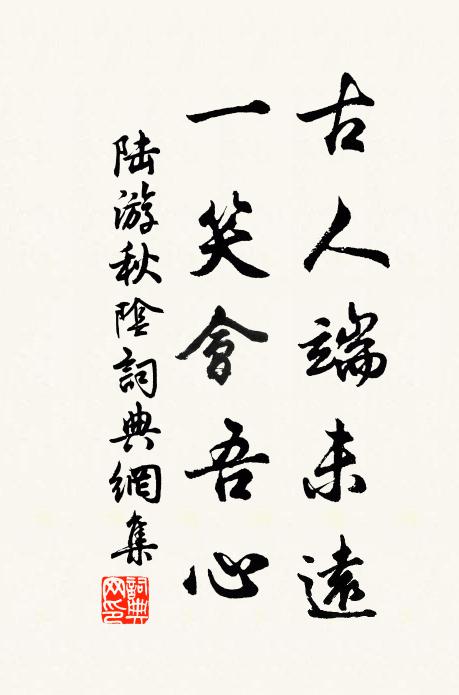 古人端未遠
一笑會吾心
陸游秋陰詞典網集
詞典網印